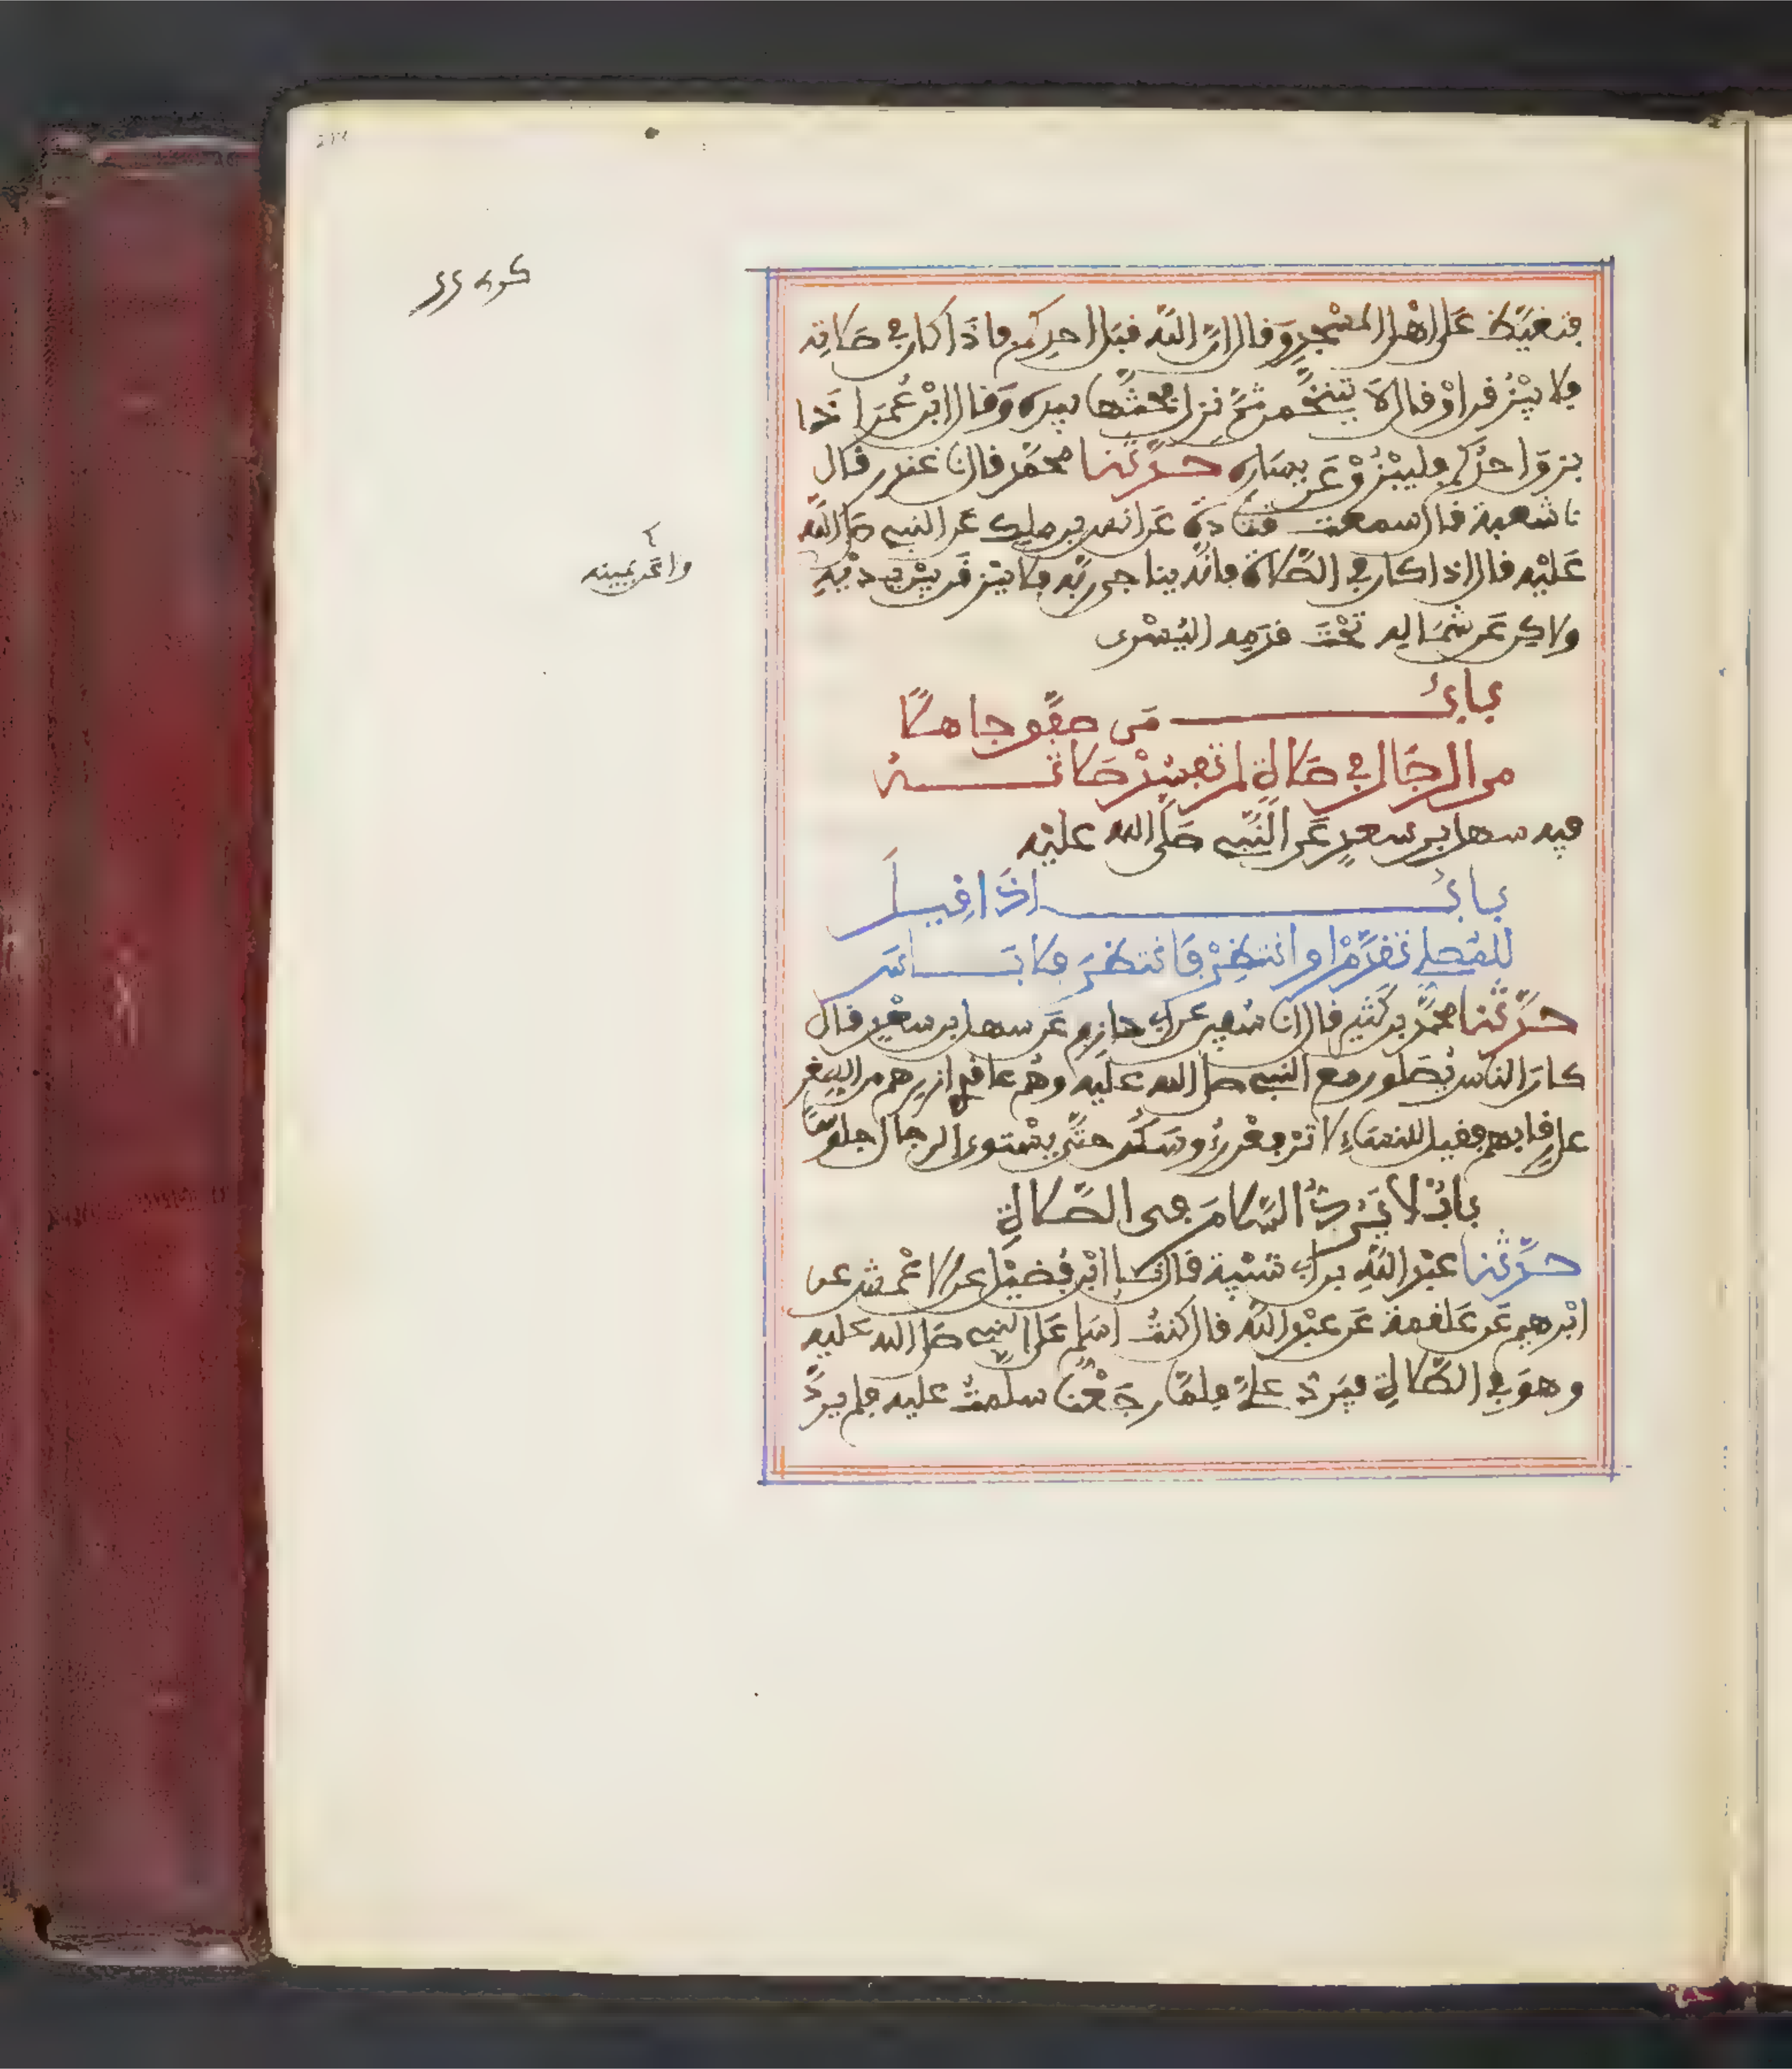 فتغيّظ على اهل المسجد وقال ان الله قبل احدكم فاذا كان في صلاته
فلا يبزقن او قال لا يتنخمن ثم نزل فحثها بيده وقال ابن عمر اذا
بزق احدكم فليبزق عن يساره حدثنا محمد قال نا غندر قال
نا شعبة قال سمعت قتادة عن انس بن ملك عن النبي صلى الله
عليه قال اذا كان في الصلاة فانه يناجي ربه فلا يبزقن بين يديه
ولاكن عن شماله تحت قدمه اليسرى
باب من صفق جاهلا
من الرجال في صلاة لم تفسد صلاته
فيه سهل بن سعد عن النبي صلى الله عليه
باب اذا قيل
للمصلي تقدم او انتظر فانتظر فلا باس
حدثنا محمد بن كثير قال انا سفين عن ابي حازم عن سهل بن سعد قال
كان الناس يصلون مع النبي صلى الله عليه وهم عاقدي ازرهم من الصغر
على رقابهم فقيل للنساء لا ترفعن رؤوسكن حتى يستوي الرجال جلوسا
باب لا يرد السلام في الصلاة
حدثنا عبد الله بن ابي شيبة قال نا ابن فضيل عن الاعمش عن
ابرهيم عن علقمة عن عبد الله قال كنت اسلم على النبي صلى الله عليه
وهو في الصلاة فيرد علي فلما رجعنا سلمت عليه فلم يرد
ولا عن يمينه